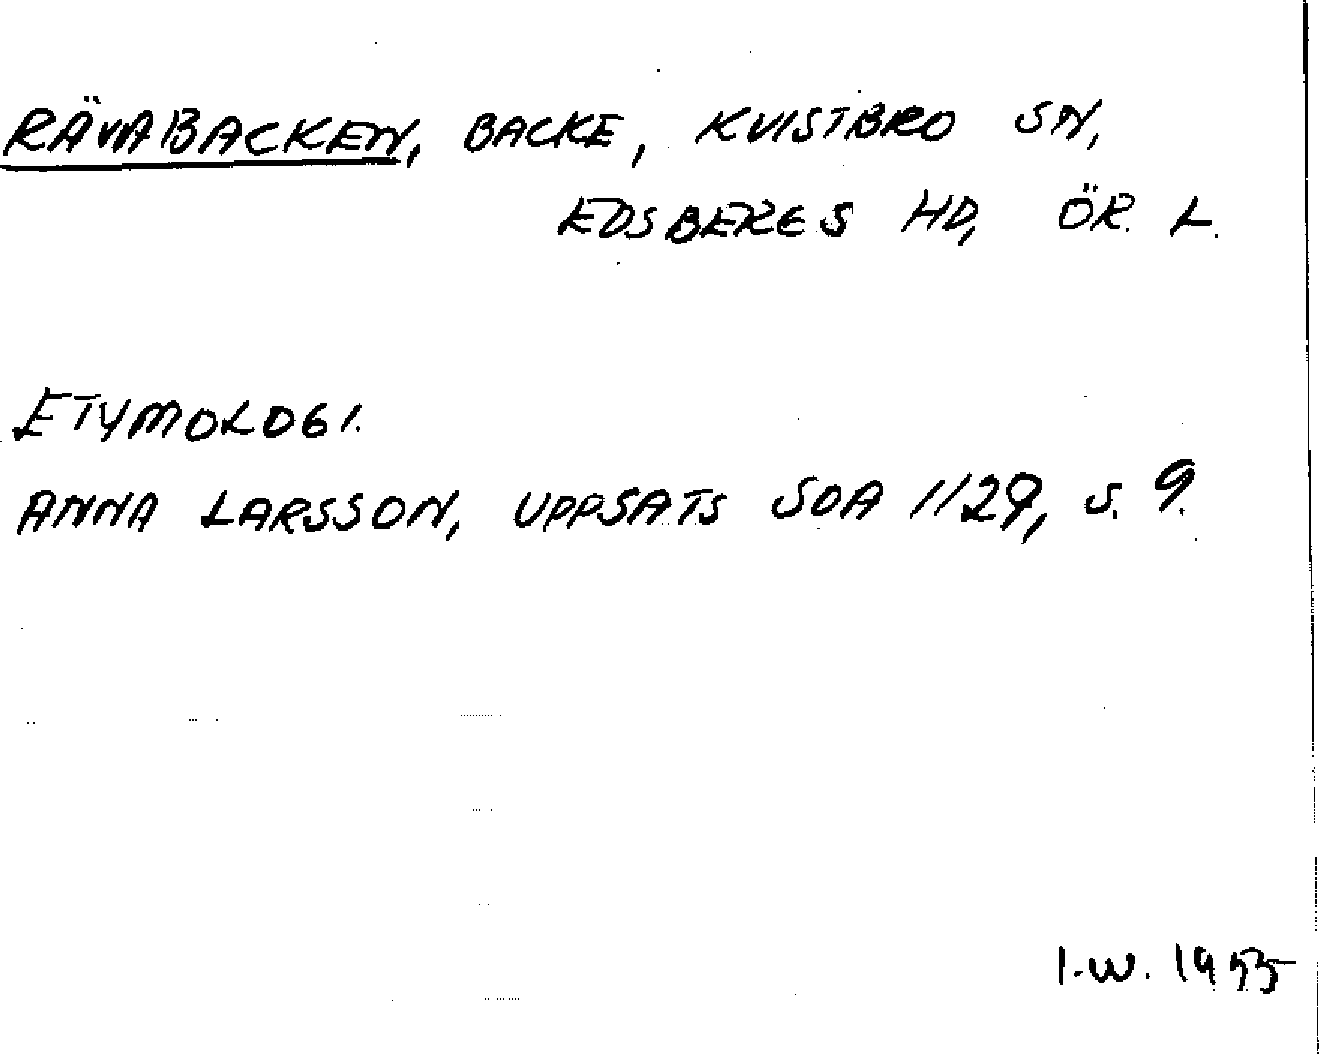 RÄVABACKEN, BACKE, KVISTBRO SN,
EDSBERGS HD, ÖR. L.
ETYMOLOGI.
ANNA LARSSON, UPPSATS SOA 1129, S. 9.
I.W. 1955